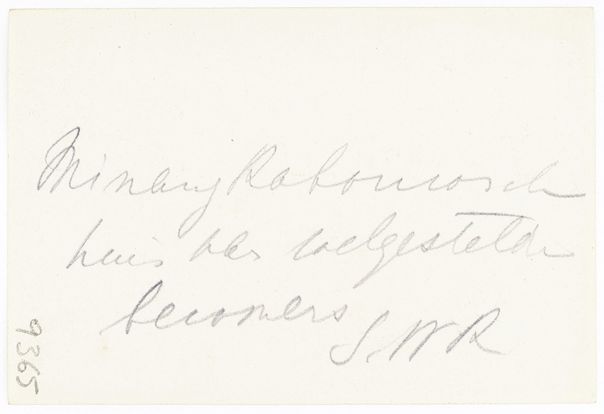 Minangkabausch
huis van welgestelde
bewoners
S.W.K
9365